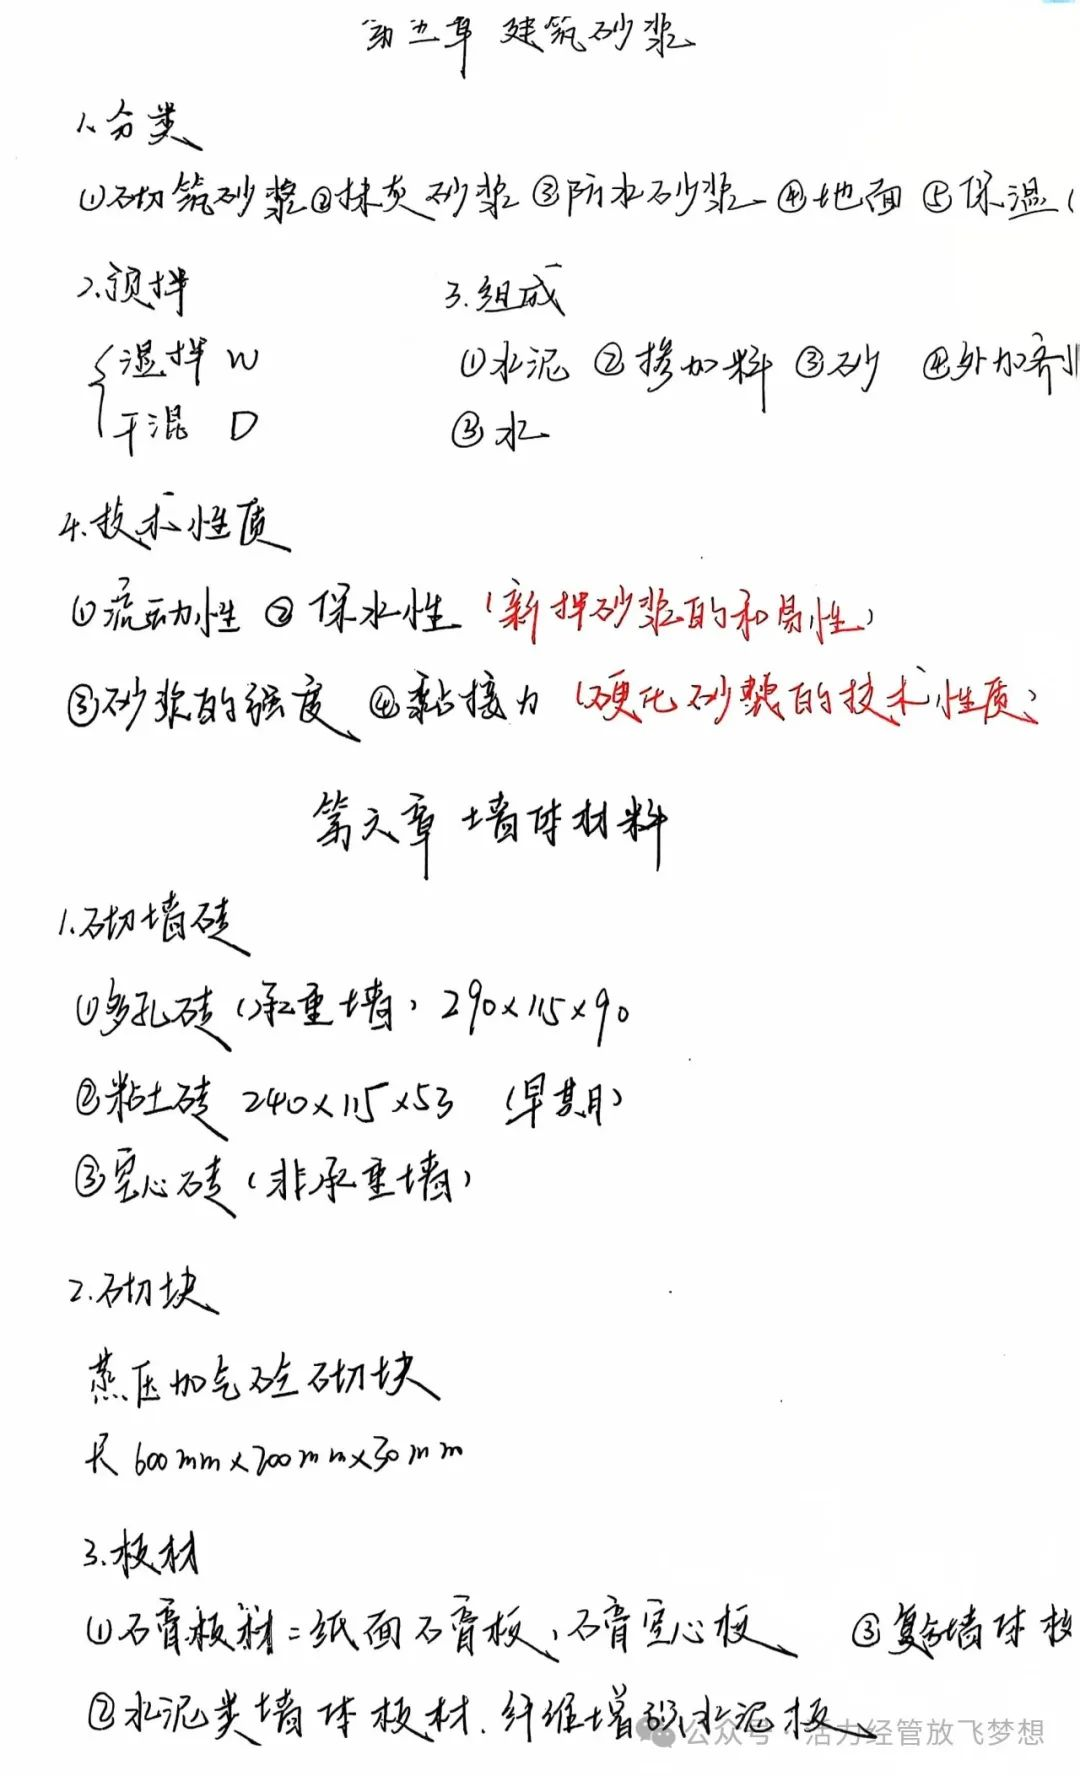 第五章 建筑砂浆
1.分类
①砌筑砂浆②抹灰砂浆③防水砂浆 ④地面⑤保温(
2.预拌 3.组成
湿拌 W ①水泥 ②掺加料 ③砂 ④外加剂
干混 D ③水
4.技术性质
①流动性 ②保水性 (新拌砂浆的和易性)
③砂浆的强度 ④黏接力 (硬化砂浆的技术性质)
第六章 墙体材料
1.砌墙砖
①多孔砖(承重墙)290×115×90
②粘土砖 240×115×53 (早期)
③空心砖(非承重墙)
2.砌块
蒸压加气砼砌块
长600mm×200mm×30mm
3.板材
①石膏板材:纸面石膏板、石膏空心板 ③复合墙体板
②水泥类墙体板材.纤维增强水泥板
公众号·活力经管放飞梦想